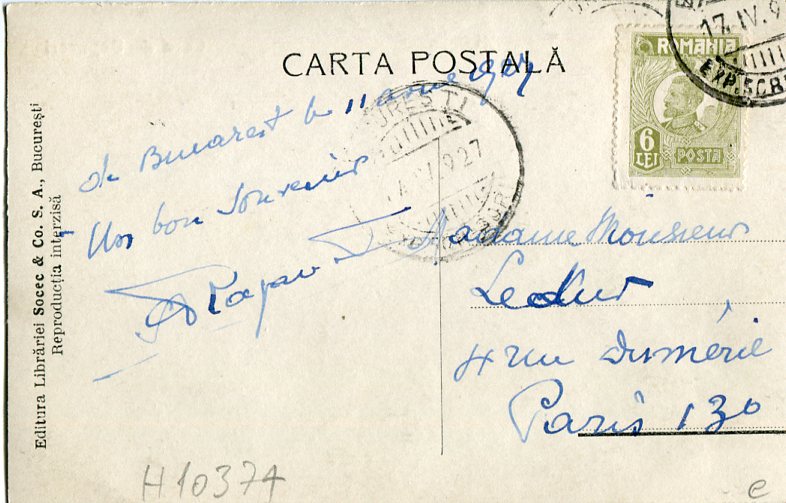 CARTA POSTALĂ
ROMANIA
6
LEI
POSTA
17.IV.9
EXP.SCRI
UREȘTI
927
de Bucarest le 11 1927
Un bon souvenir
Madame Monsieur
Ledur
4 rue Duméril
Paris 130
Editura Librăriei Socec & Co. S. A., București
Reproducția interzisă
H10374
e